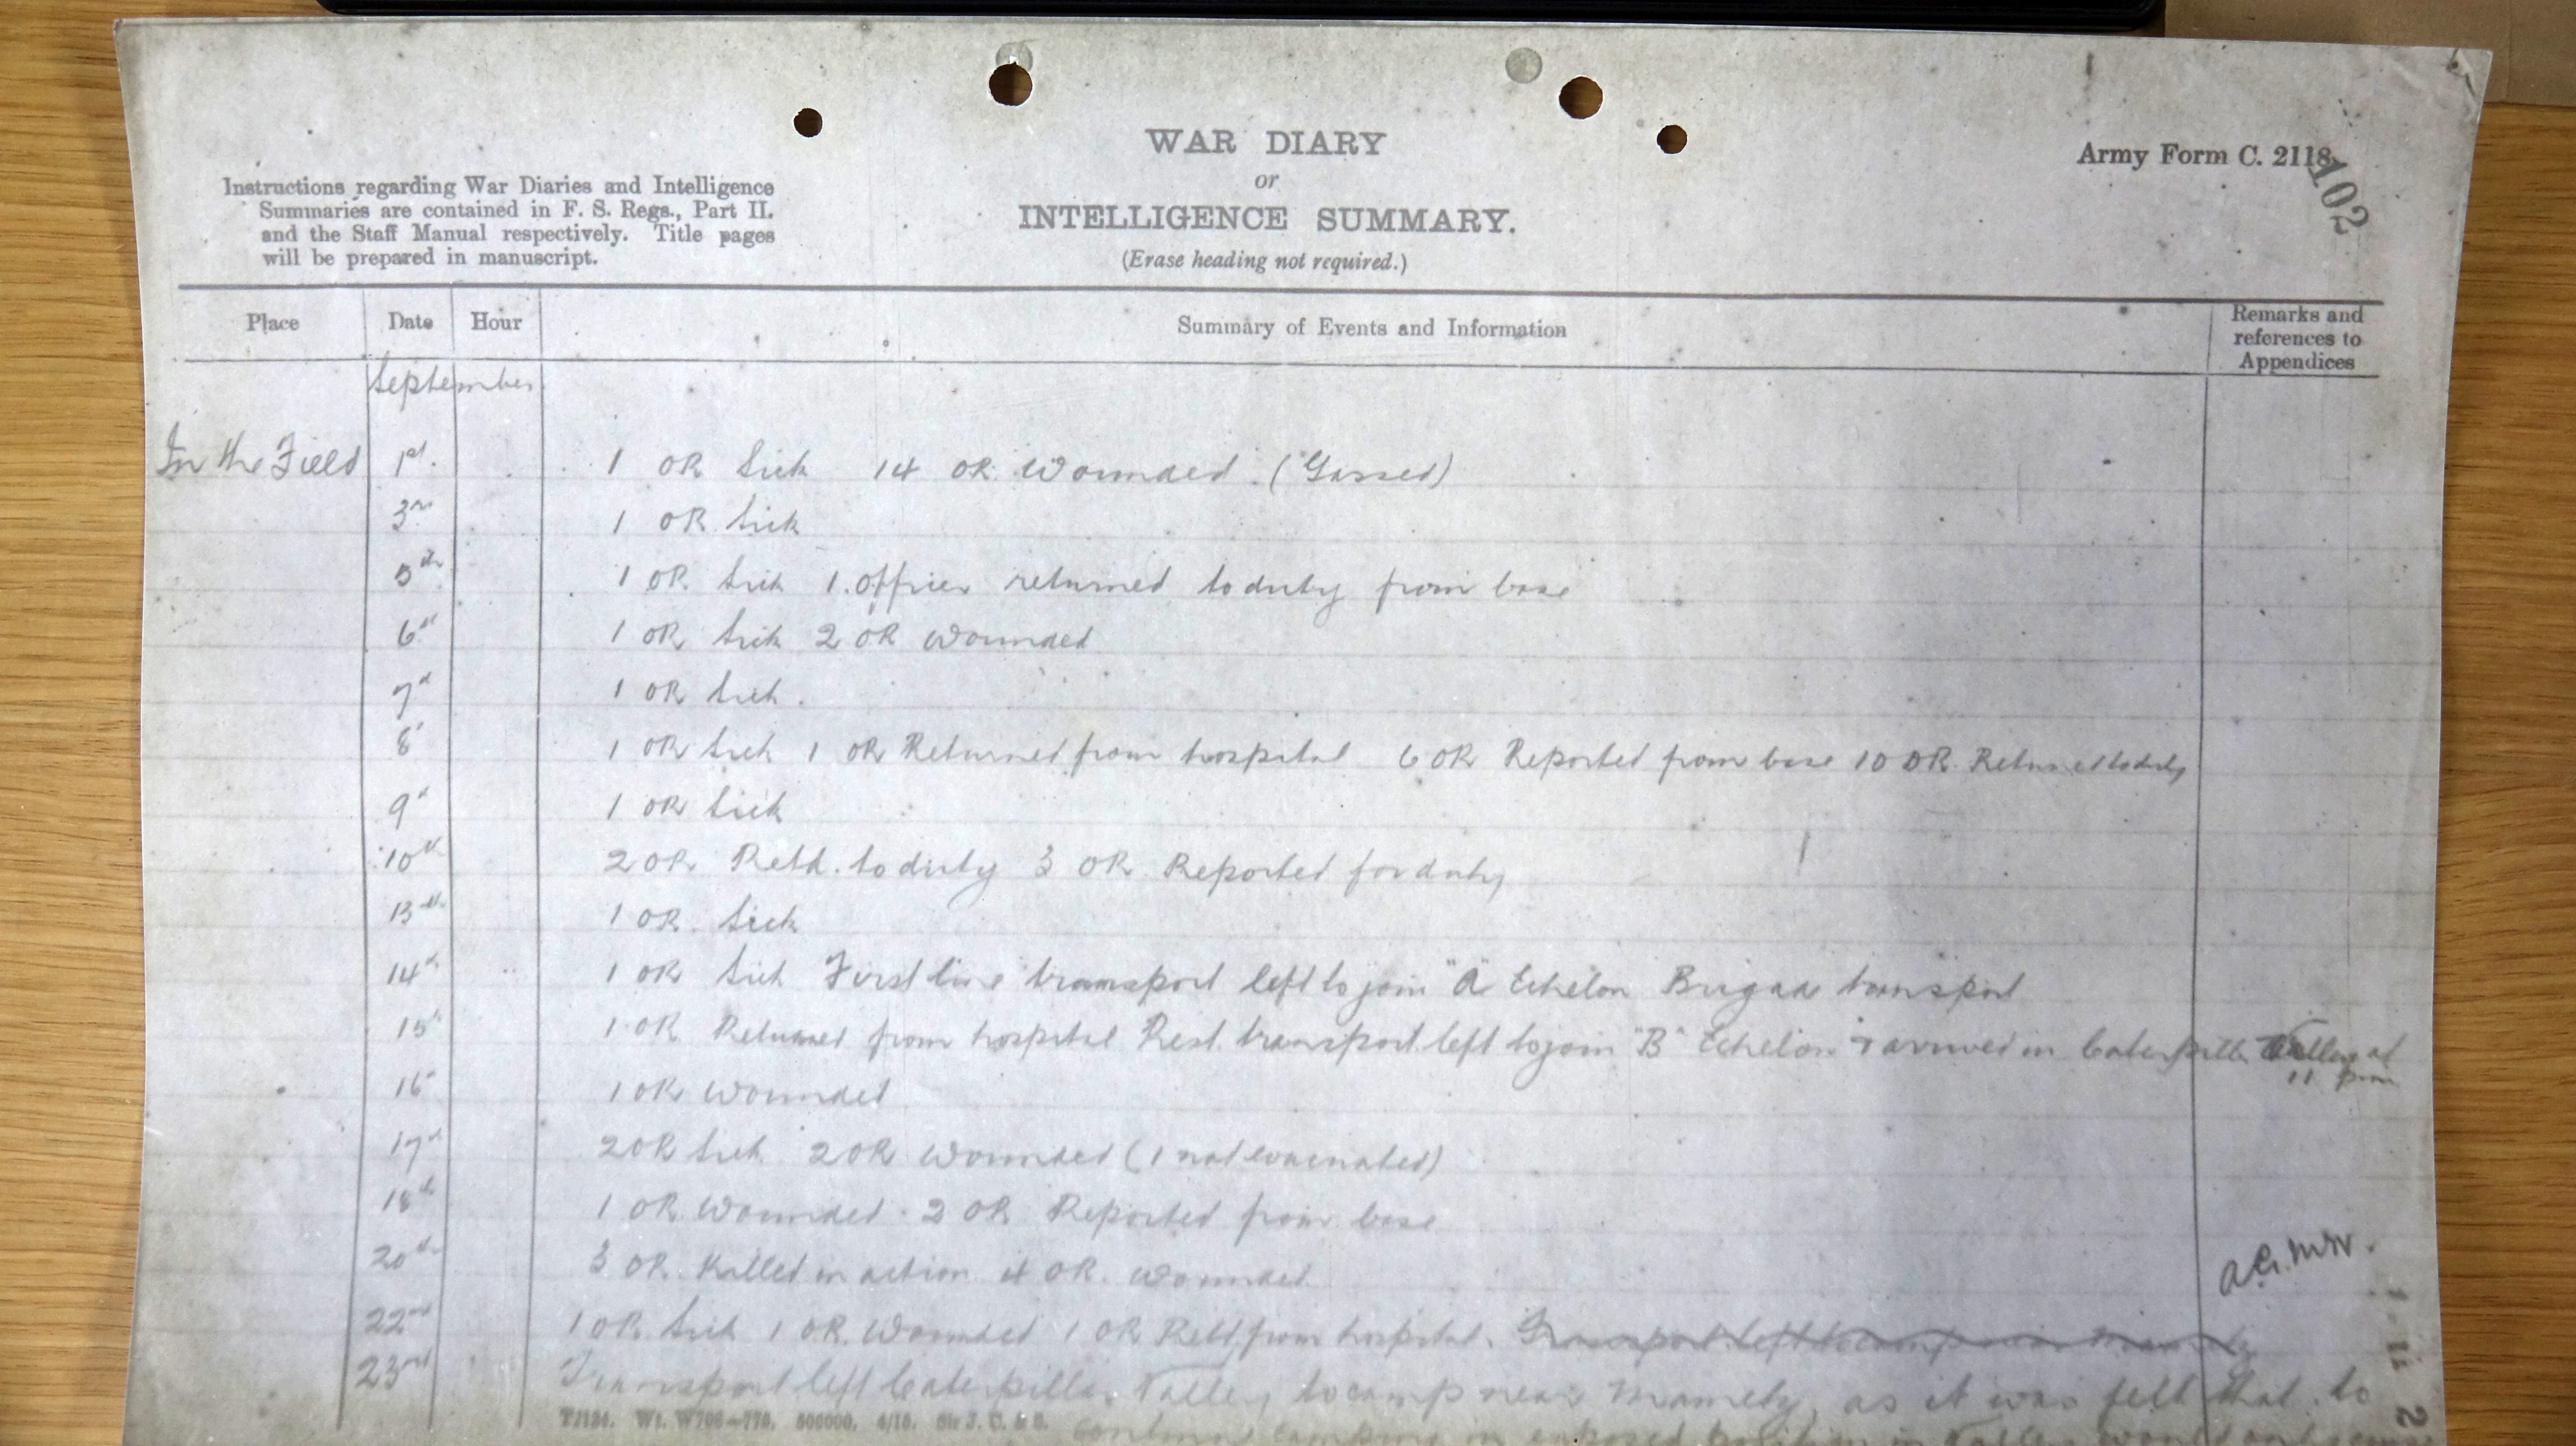 WAR DIARY
or
INTELLIGENCE SUMMARY.
(Erase heading not required.)
Army Form C. 2118
102
Instructions regarding War Diaries and Intelligence
Summaries are contained in F. S. Regs., Part II.
and the Staff Manual respectively. Title pages
will be prepared in manuscript.
Place Date Hour Summary of Events and Information Remarks and
references to
Appendices
September
In the Field 1st. 1 OR Sick 14 OR Wounded. (Gassed)
3rd 1 OR Sick
5th 1 OR Sick 1 Officer returned to duty from base
6th 1 OR Sick 2 OR Wounded
7th 1 OR Sick.
8 1 OR Sick 1 OR Returned from hospital 6 OR Reported from base 10 OR Returned to duty
9th 1 OR Sick
10th 2 OR Retd. to duty 3 OR Reported for duty
13th 1 OR. Sick
14th 1 OR Sick First line transport left to join "A" Echelon Brigade transport
15th 1 OR Returned from hospital Rest transport left to join "B" Echelon & arrived in Caterpillar Valley at
11 pm
16 1 OR Wounded
17th 2 OR Sick 2 OR Wounded (1 not evacuated)
18th 1 OR Wounded. 2 OR Reported from base
20th 3 OR Killed in action 4 OR. Wounded
22nd 1 OR Sick 1 OR. Wounded 1 OR Retd. from hospital. Transport left to camp near Mametz
23rd Transport left Caterpillar Valley to camp near Mametz, as it was felt that to
T/134. Wt. W708—776. 500000. 4/15. Sir J. C. & S.
continue camping in exposed position in Valley would